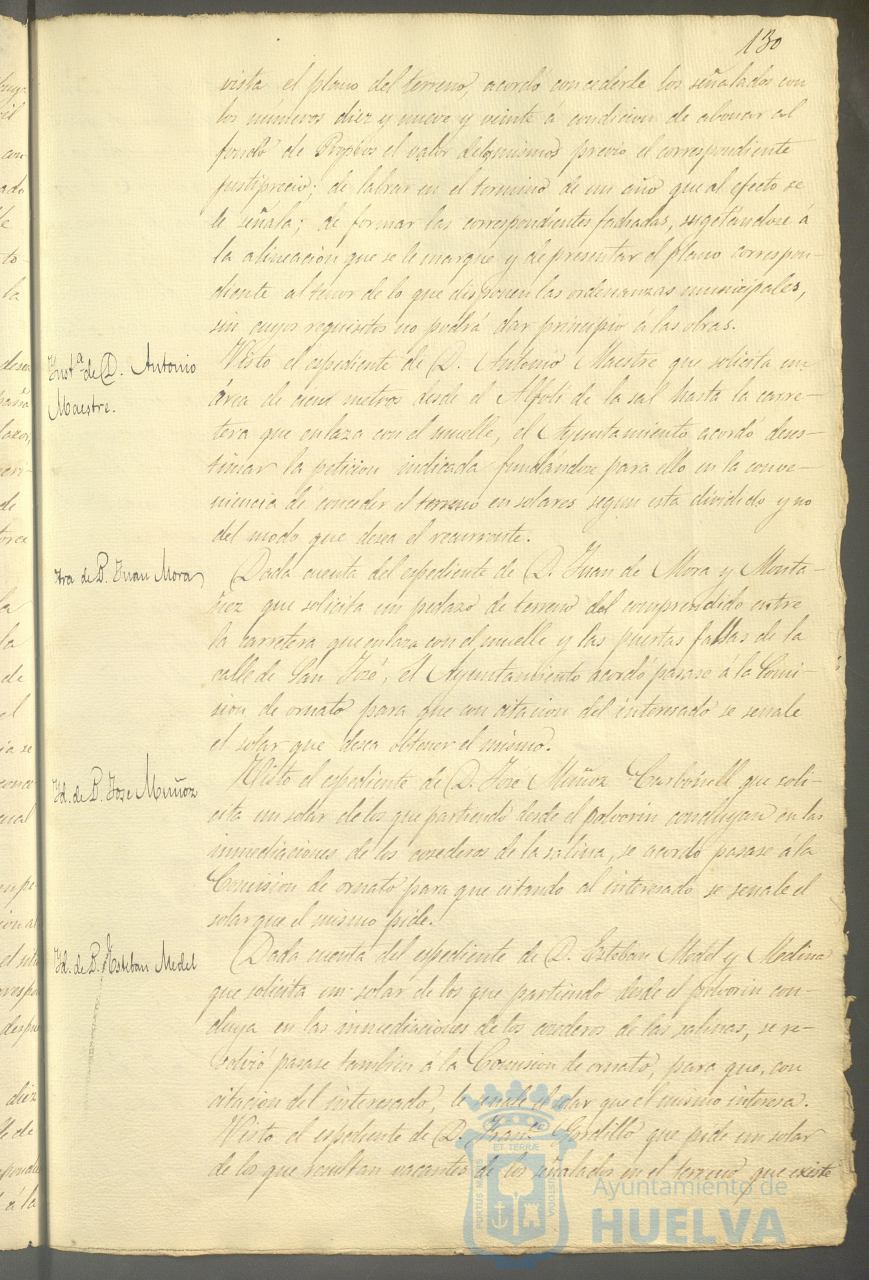 130
vista el plano del terreno, acordó concederle los señalados con
los números diez y nueve y veinte á condicion de abonar al
fondo de Propios el valor de los mismos previo el correspondiente
justiprecio; de labrar en el termino de un año que al efecto se
le señala; de formar las correspondientes fachadas, sugetandose á
la alineación que se le marque y de presentar el plano correspon-
diente al tenor de lo que disponen las ordenanzas municipales,
sin cuyos requisitos no podrá dar principio á las obras.
Inst.ª de D. Antonio
Maestre.
Visto el espediente de D. Antonio Maestre que solicita un
área de cien metros desde el Alfolí de la sal hasta la carre-
tera que enlaza con el muelle, el Ayuntamiento acordó deses-
timar la peticion indicada fundándose para ello en la conve-
niencia de conceder el terreno en solares segun esta dividido y no
del modo que desea el recurrente.
Otra de D. Juan Mora
Dada cuenta del espediente de D. Juan de Mora y Monta-
ñez que solicita un pedazo de terreno del comprendido entre
la carretera que enlaza con el muelle y las puertas falsas de la
calle de San José, el Ayuntamiento acordó pasase á la Comi-
sion de ornato para que con citacion del interesado se señale
el solar que desea obtener el mismo.
Id. de D. Jose Muñoz
Visto el espediente de D. José Muñoz Carbonell que soli-
cita un solar de los que partiendo desde el polvorin concluyan en las
inmediaciones de los cocederos de la salina, se acordó pasase á la
Comision de ornato para que citando al interesado se señale el
solar que el mismo pide.
Id. de D. Esteban Medel
Dada cuenta del espediente de D. Esteban Medel y Medina
que solicita un solar de los que partiendo desde el polvorin con-
cluya en las inmediaciones de los cocederos de las salinas, se re-
solvió pasase tambien á la Comision de ornato, para que, con
citacion del interesado, le señale el solar que el mismo interesa.
Visto el espediente de D. Fran.co Gordillo que pide un solar
de los que resultan vacantes de los señalados en el terreno que existe
ET TERRÆ
PORTUS MARIS
CUSTODIA
Ayuntamiento de
HUELVA